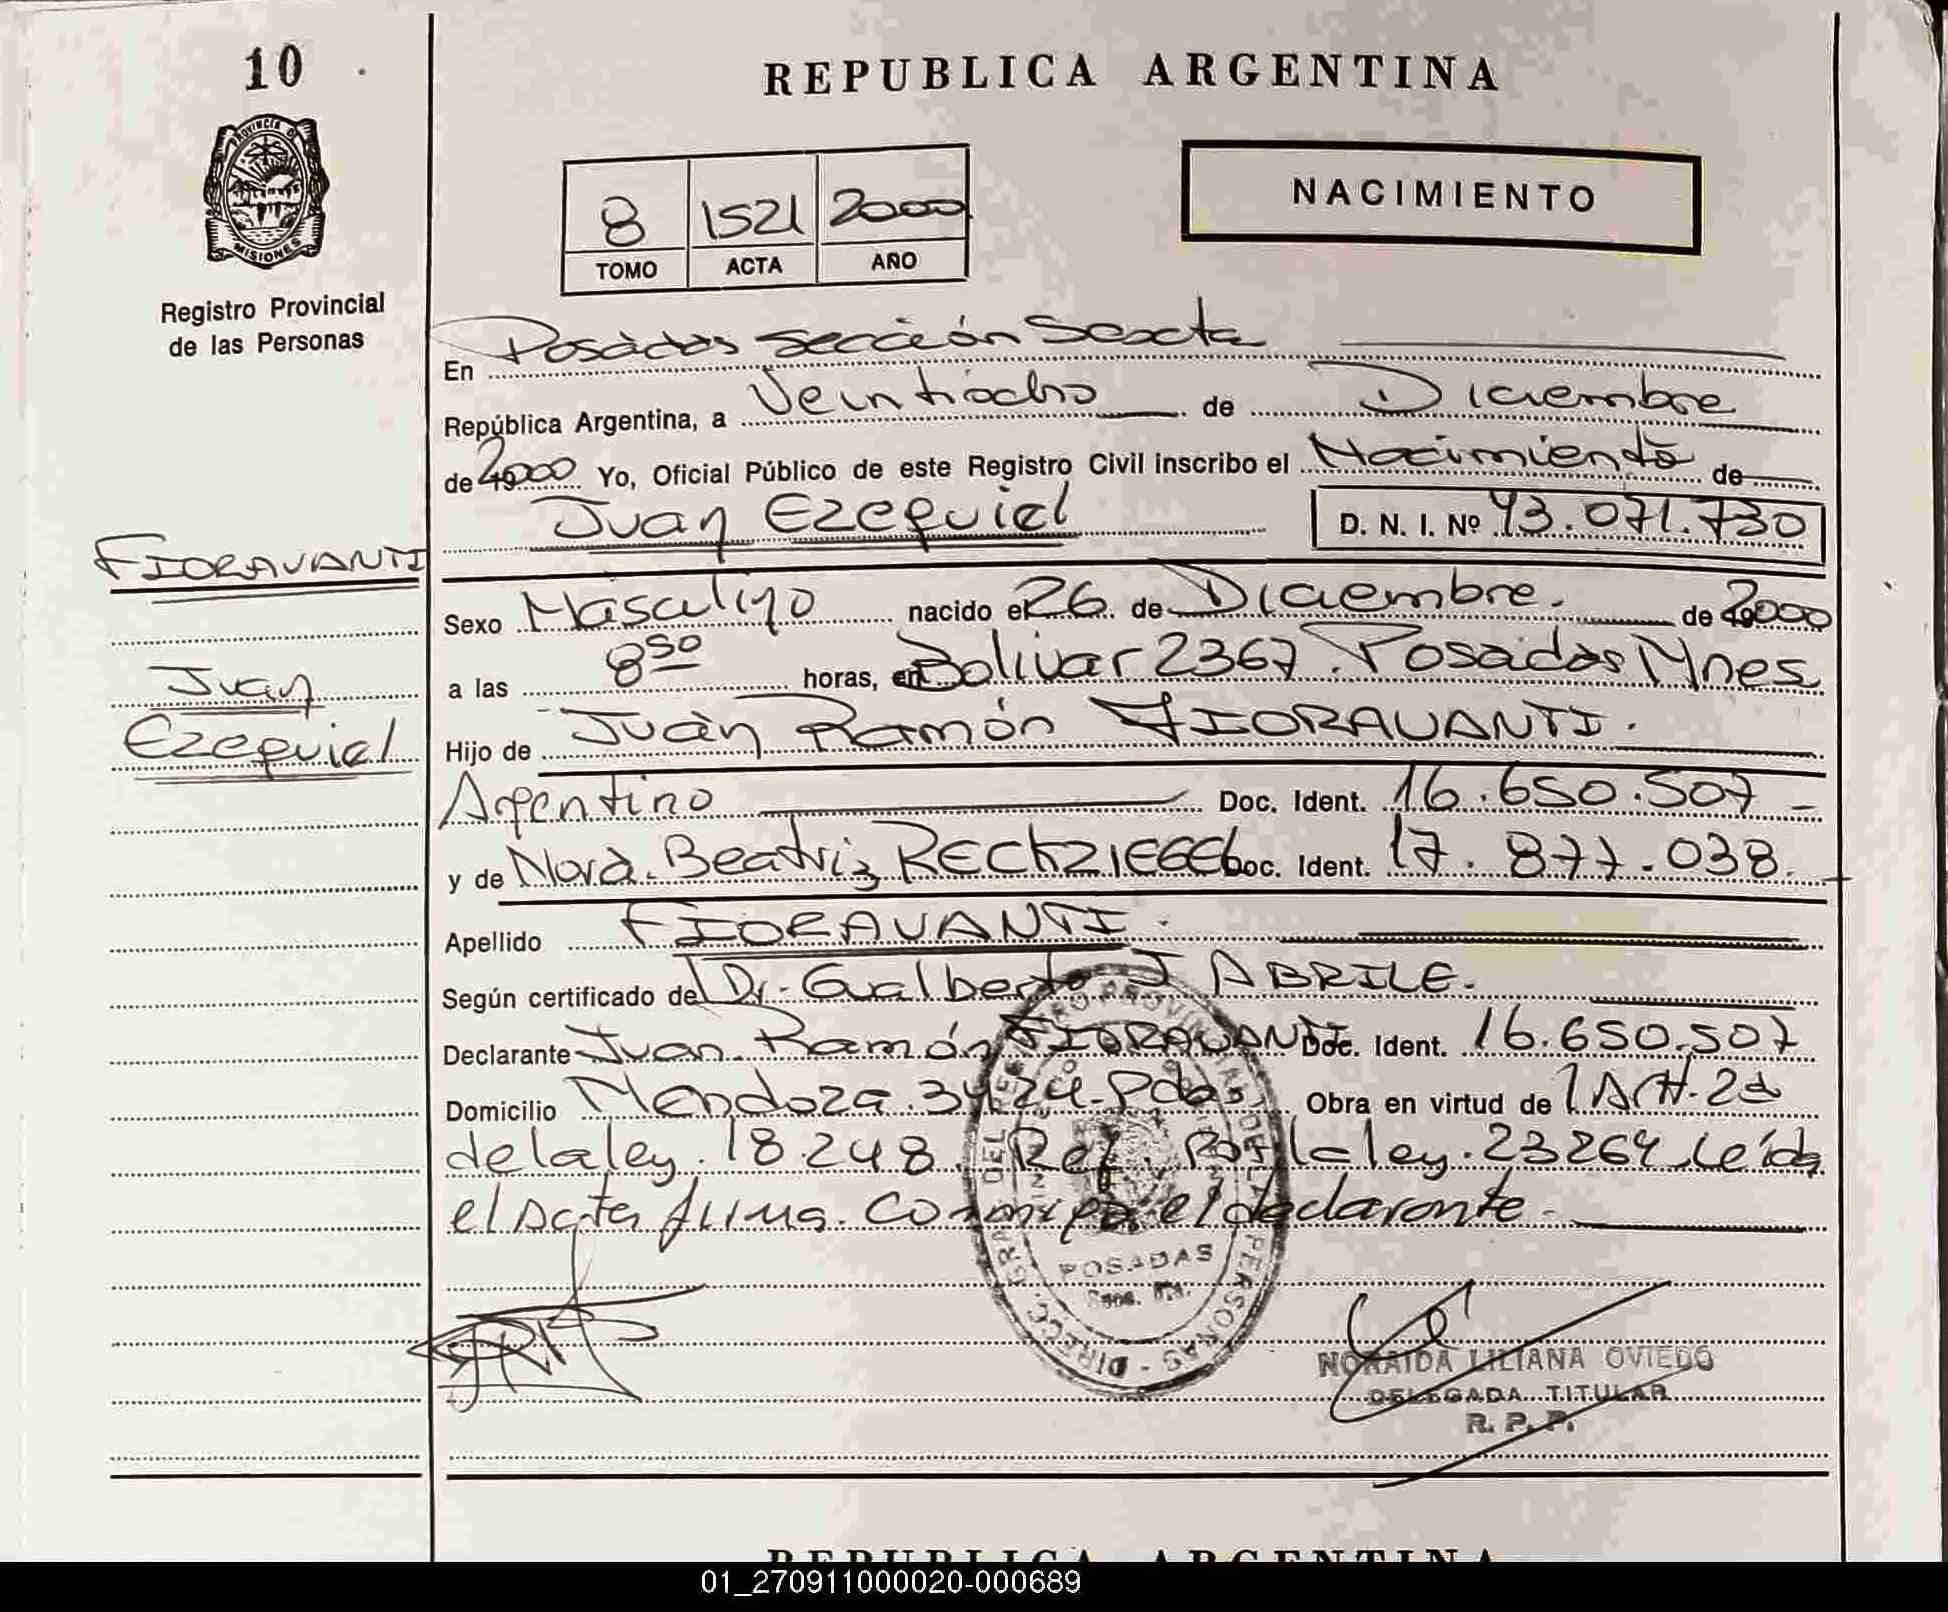 10
REPUBLICA ARGENTINA
PROVINCIA DE
MISIONES
NACIMIENTO
8 1521 2000
TOMO ACTA AÑO
Registro Provincial
de las Personas
En Posadas Sección Sexta
República Argentina, a Veintiocho de Diciembre
de 2000 Yo, Oficial Público de este Registro Civil inscribo el Nacimiento de
Juan Ezequiel D. N. I. Nº 43.071.730
FIORAVANTI
Juan
Ezequiel
Sexo Masculino nacido el 26 de Diciembre. de 2000
a las 8 50 horas, en Bolivar 2367. Posadas Mnes
Hijo de Juan Ramón FIORAVANTI.
Argentino Doc. Ident. 16.650.507
y de Nora Beatriz RECKZIEGEL Doc. Ident. 17.877.038.
Apellido FIORAVANTI.
Según certificado del Dr. Gualberto J ABRILE.
Declarante Juan Ramón FIORAVANTI Doc. Ident. 16.650.507
Domicilio Mendoza 3424 Pdas Obra en virtud de
de la ley. 18.248. Ref. Por la ley. 23264 Leída
el Acta firma conmigo el declarante
DIRECC. GRAL. DEL REGISTRO PROVINCIAL DE LAS PERSONAS
POSADAS
NORAIDA LILIANA OVIEDO
DELEGADA TITULAR
R. P. P.
REPUBLICA ARGENTINA
01_270911000020-000689